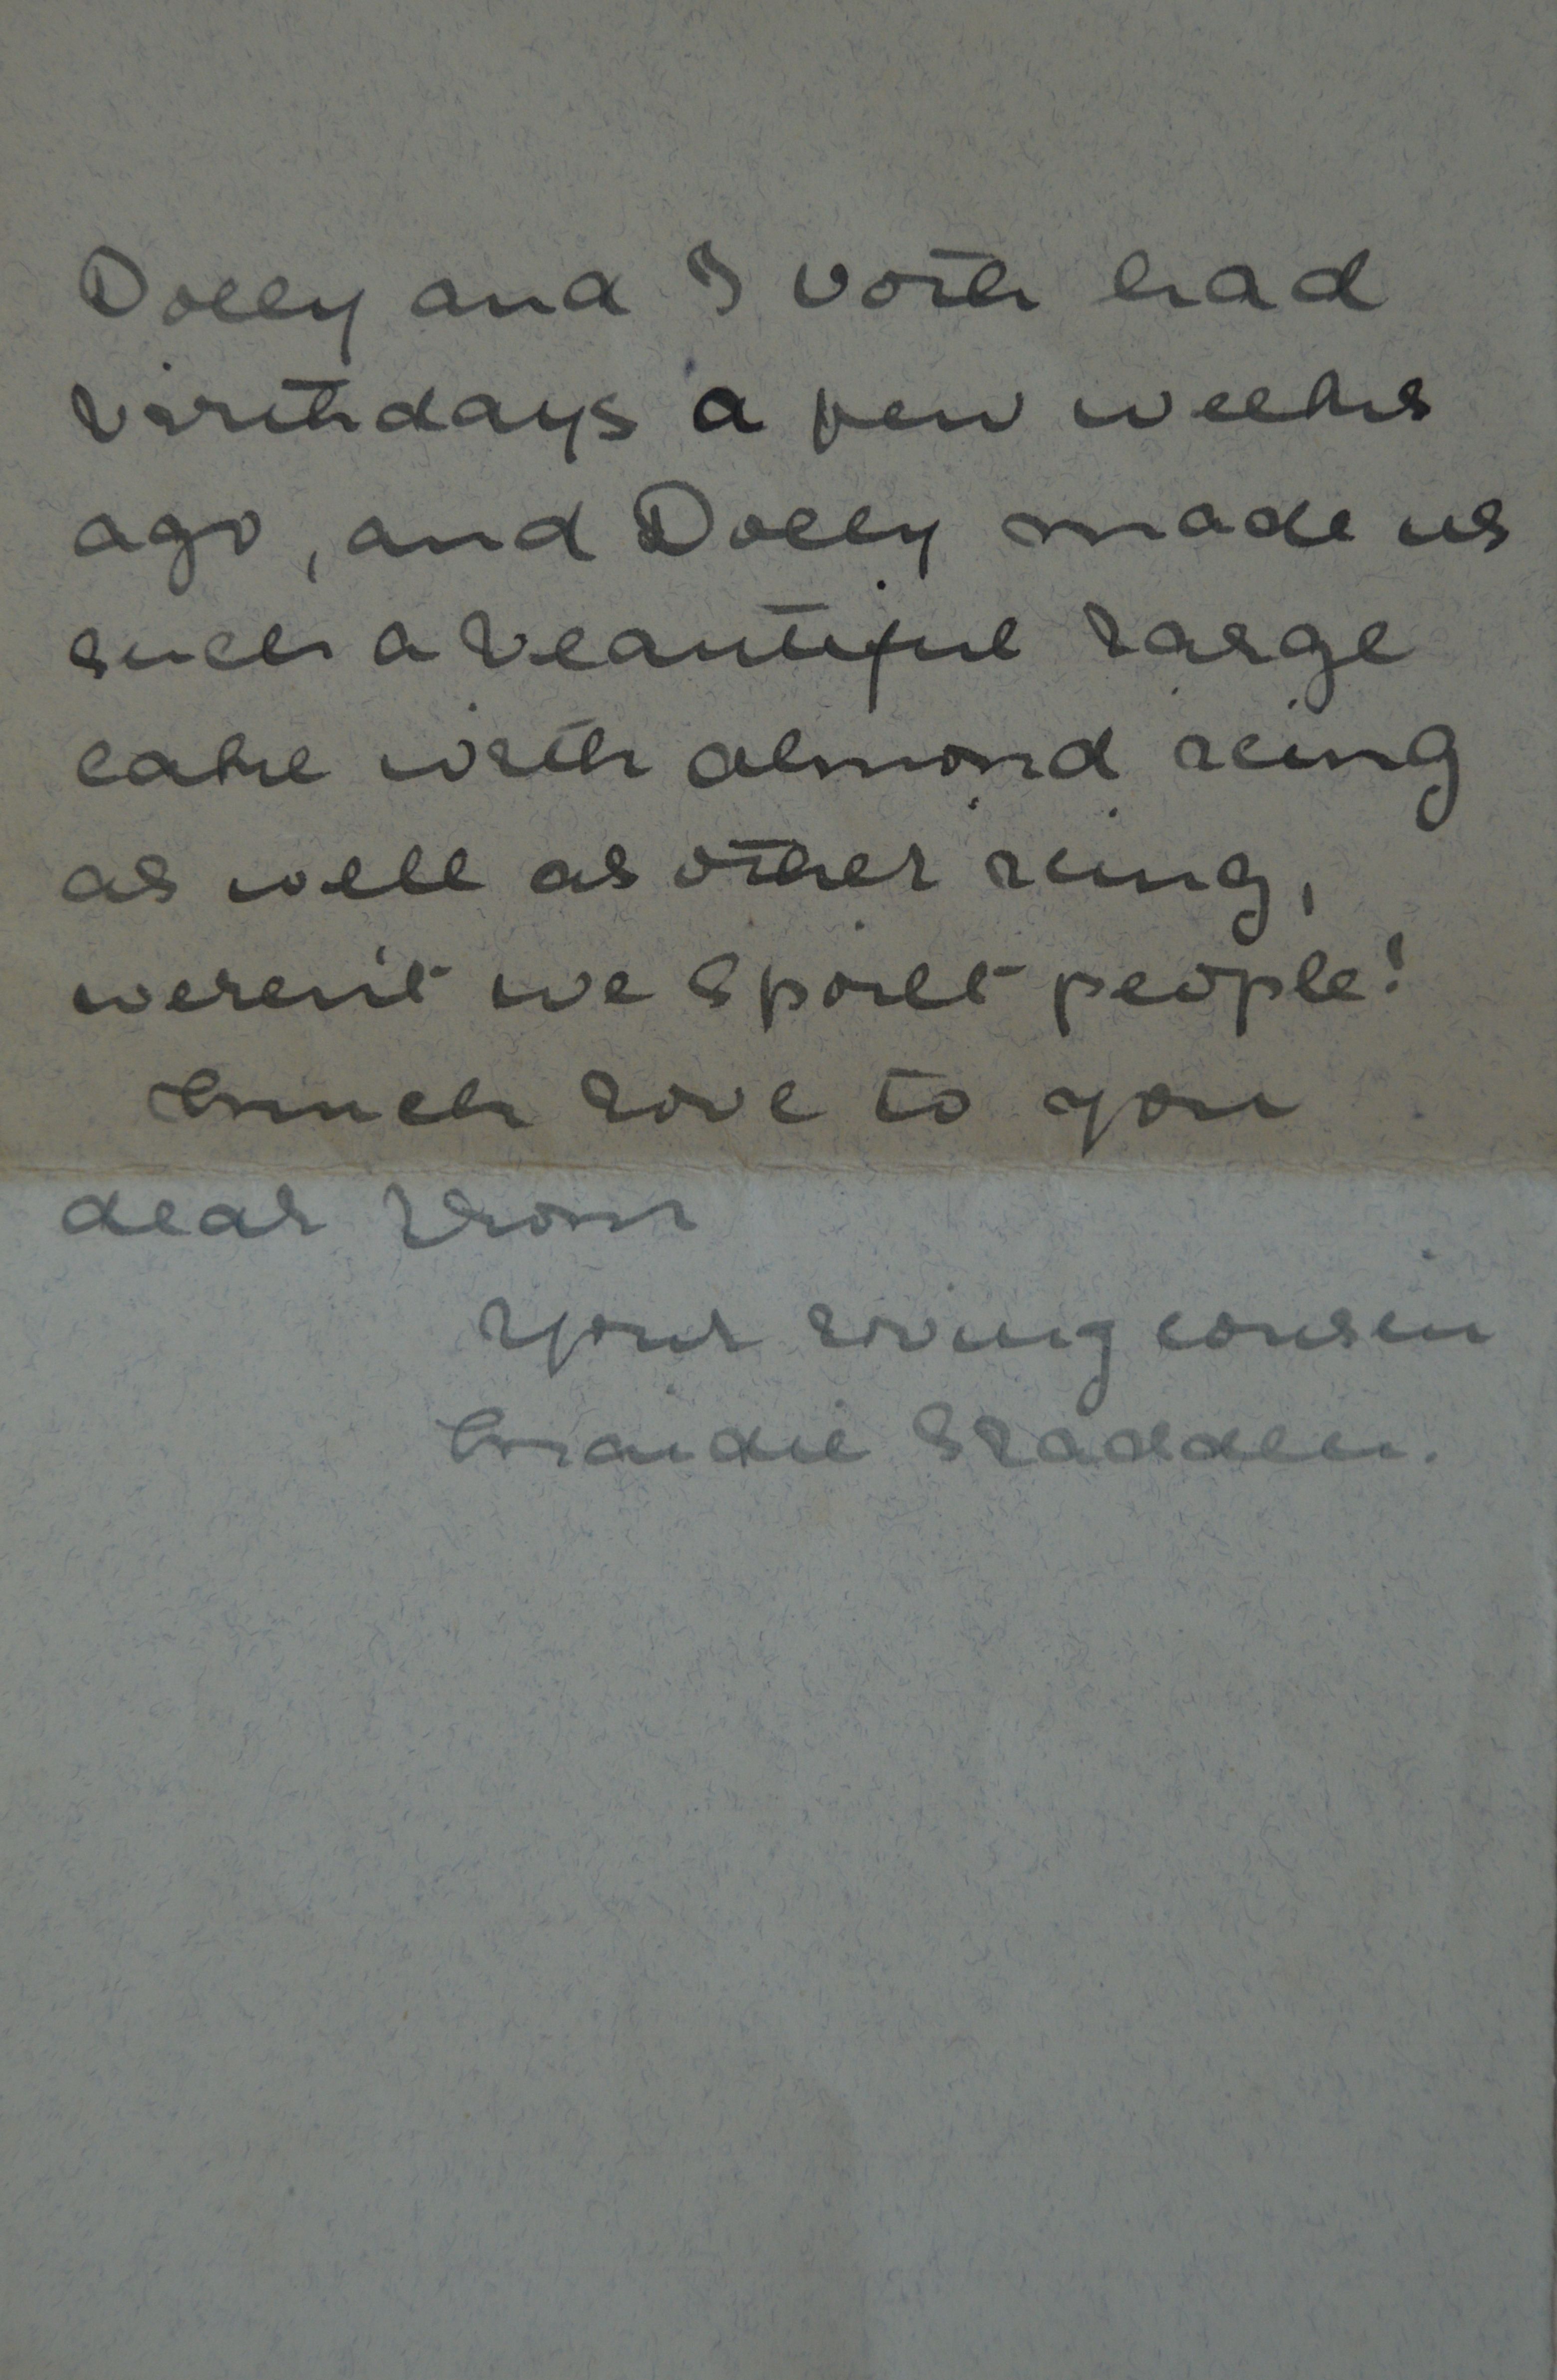 Dolly and I both had
birthdays a few weeks
ago, and Dolly made us
such a beautiful large
cake with almond icing
as well as other icing,
weren't we spoilt people!
Much love to you
dear
Your loving cousin
Maudie Sladden.